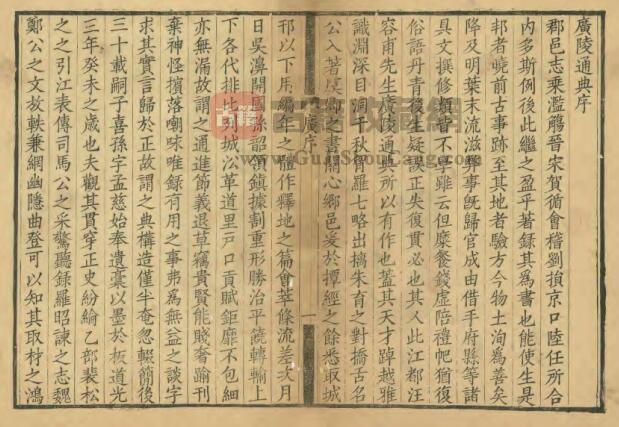 廣陵通典序
郡邑志乘濫觴晉宋賀循會稽劉損京口陸任所合
內多斯例後此繼之盈乎著錄其為書也能使生是
邦者曉前古事跡至其地者驗方今物土洵為善矣
降及明葉末流滋弊事既歸官成由借手府縣等諸
具文撰修類皆不學雖云但縻餐錢虛陪禮帊猶復
俗語丹青後生疑誤正失復貫必也其人此江都汪
容甫先生廣陵通典所以有作也蓋其天才踔越雅
識淵深目洞千秋胷羅七略出擒朱育之對擣古名
公入著吳鄉之書關心鄉邑爰於撢經之餘悉取城
廣序
一
邗以下用編年之體作釋地之篇會萃條流差次月
日吳濞開國孫韶領鎮據割重形勝治平饒轉輸上
下各代排比列城㳂革道里戸口貢賦鉅靡不包細
亦無漏故謂之通進節義退草竊貴賢能賤奢踰刊
棄神怪損落嘲咏唯錄有用之事弗為無益之談字
求其實言歸於正故謂之典構造僅半奄忽輟簡後
三十載嗣子喜孫字孟慈始奉遺稾以墨於板道光
三年癸未之歲也夫觀其貫穿正史紛綸乙部裴松
之之引江表傳司馬公之采驚聽錄羅昭諫之志魏
鄭公之文故軼兼網幽隱曲登可以知其取材之鴻